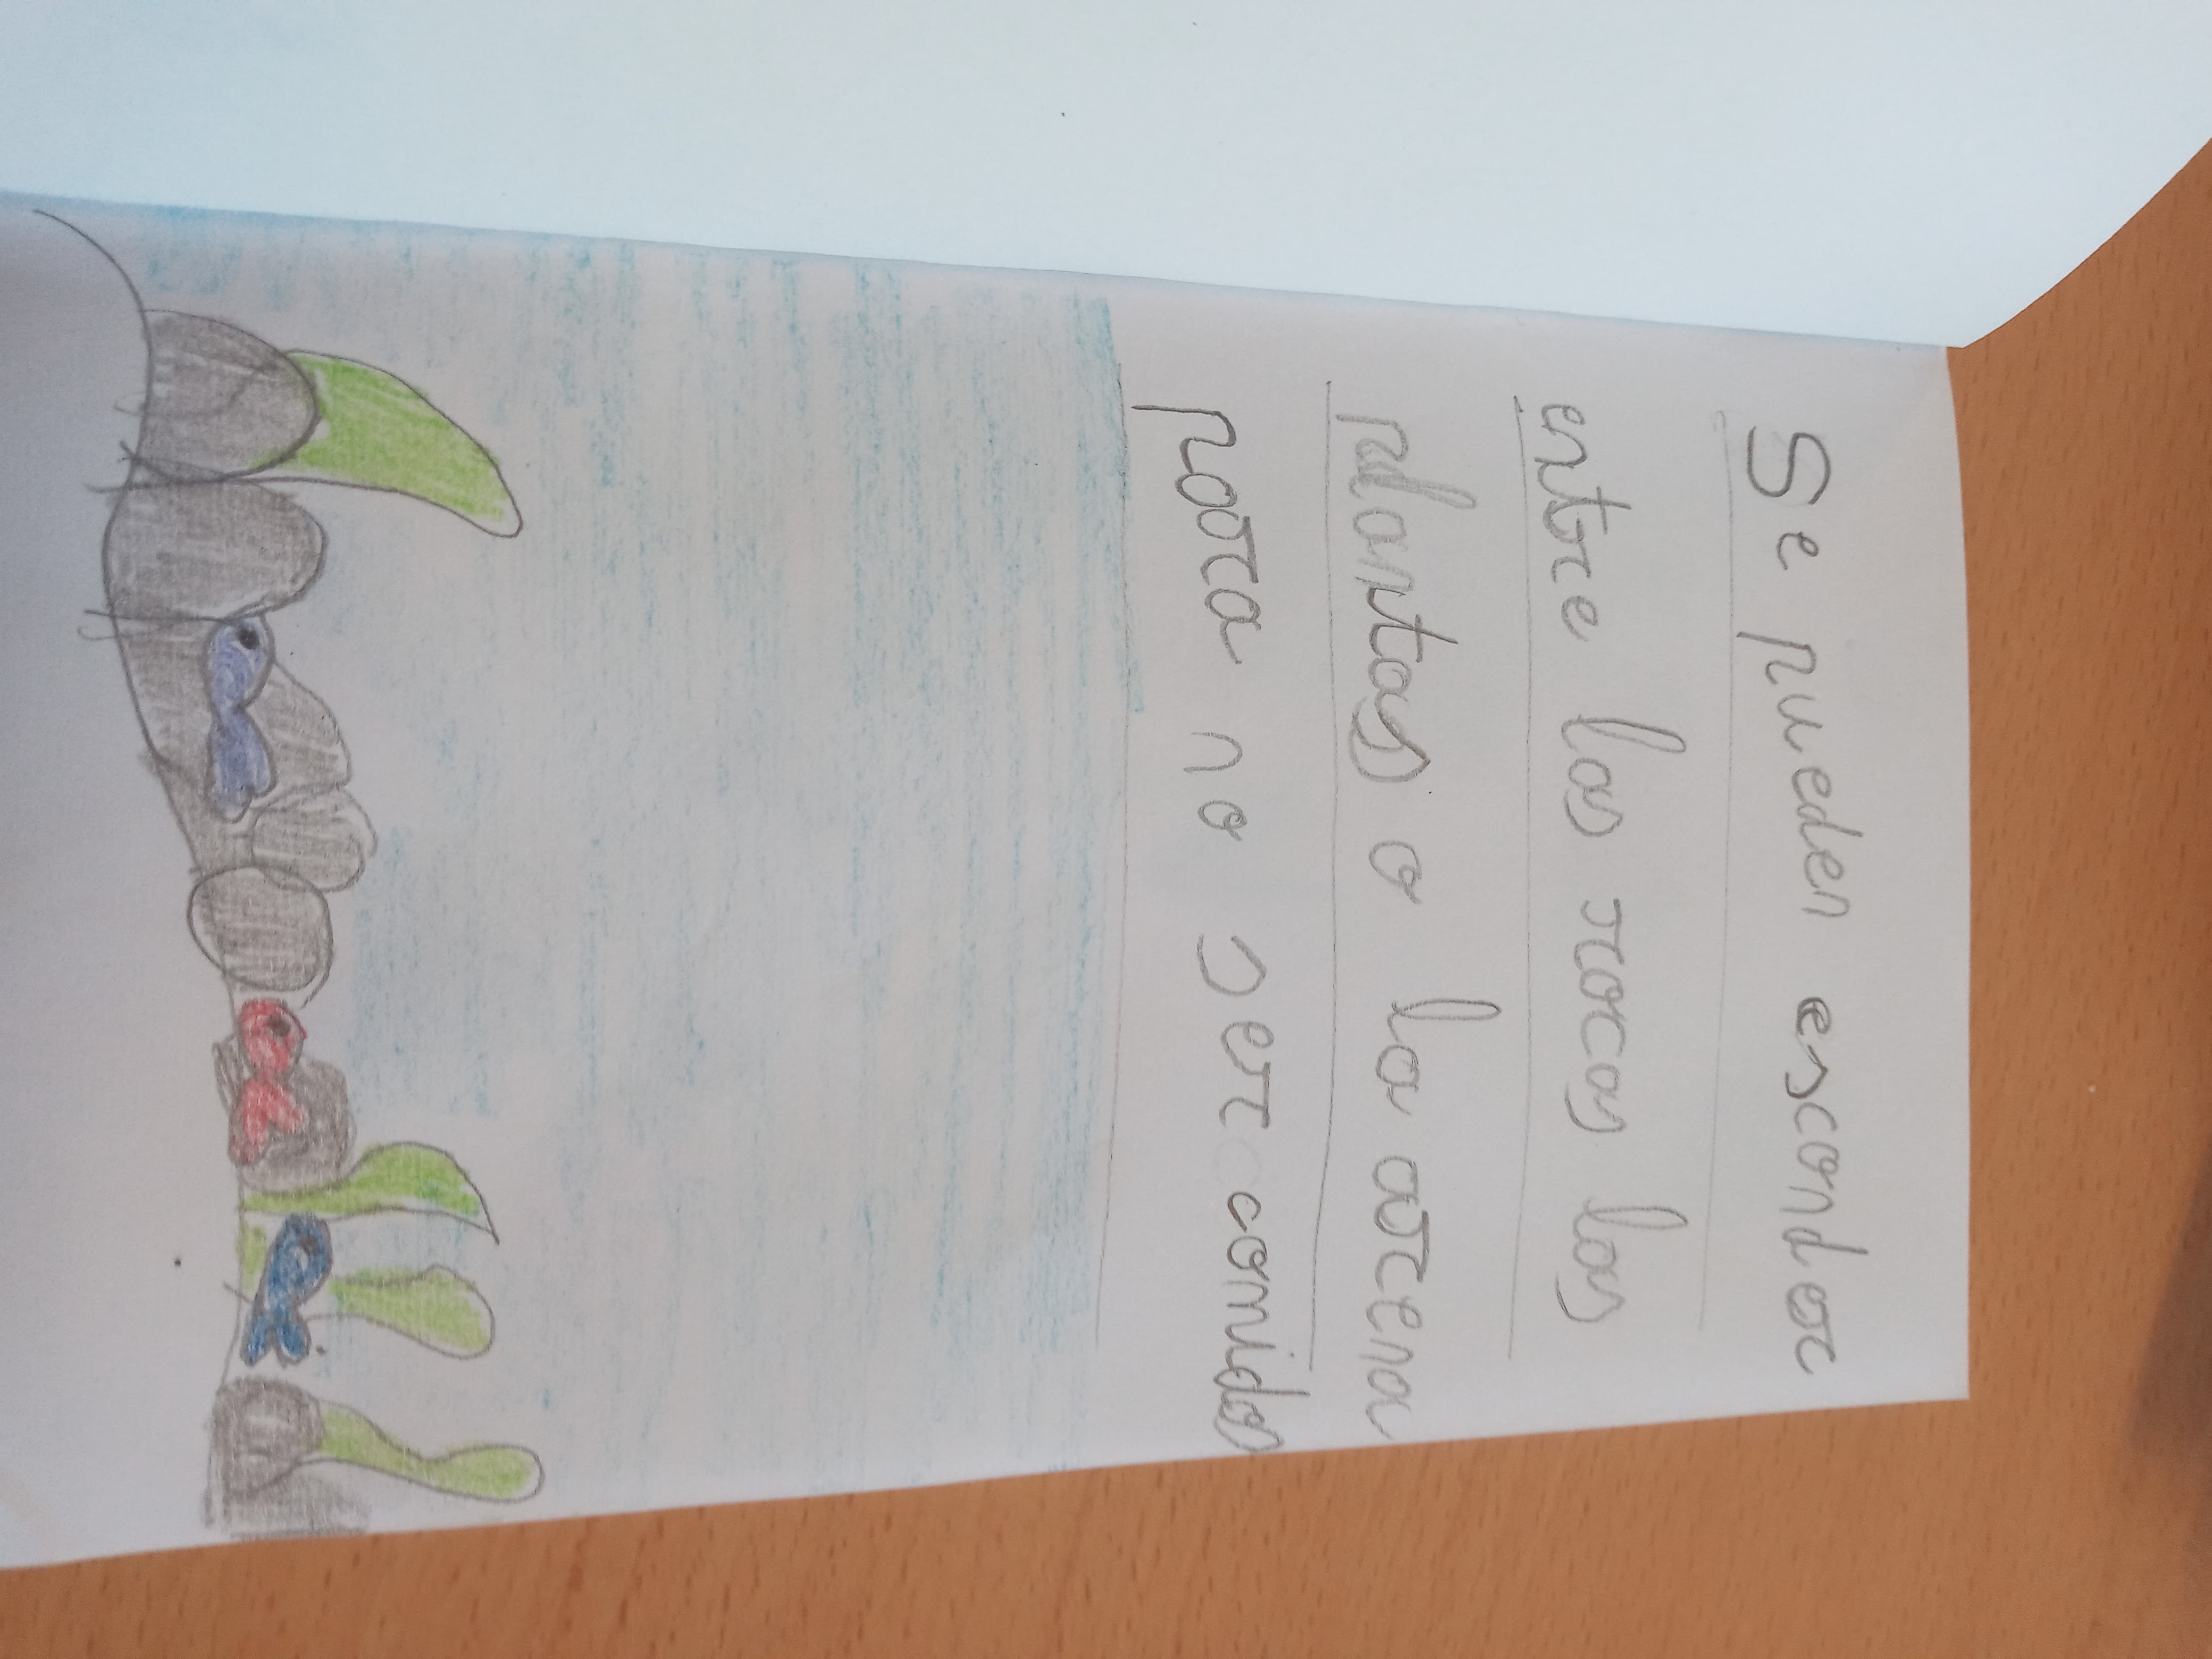 Se pueden esconder
entre las rocas las
plantas o la arena
para no ser comidos